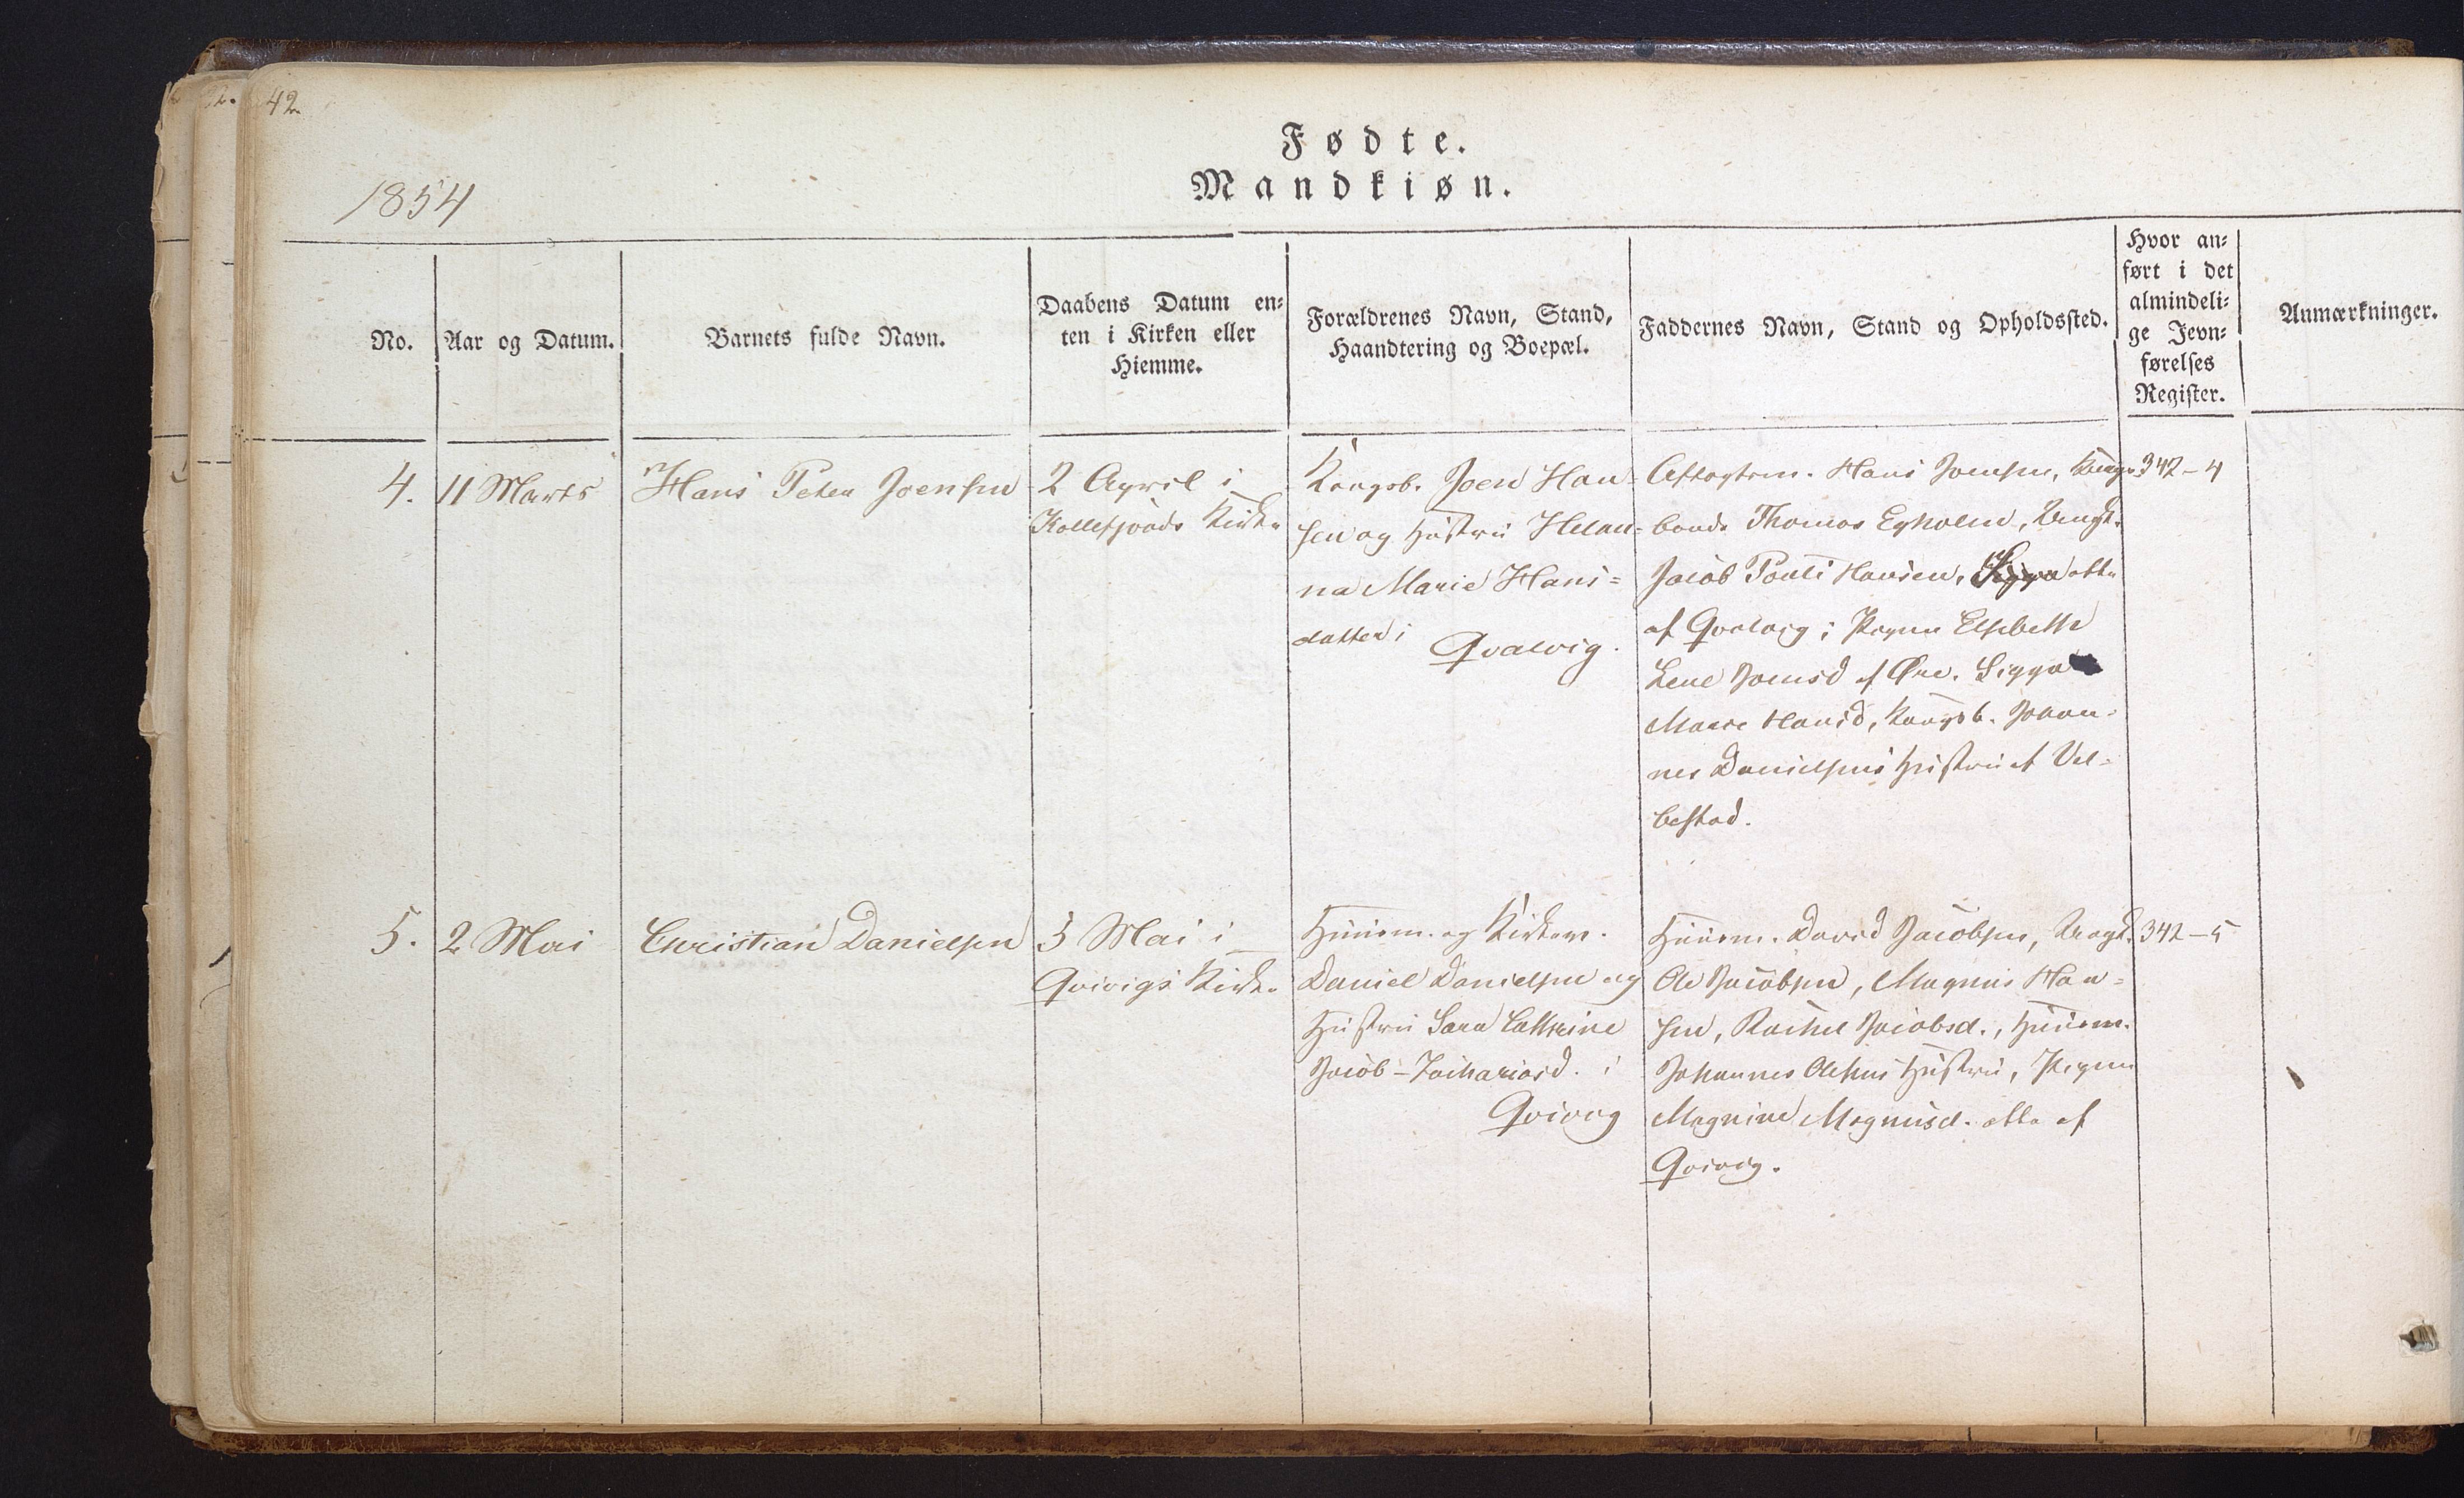 42
Fødte.
Mandkiøn.
1854
No.
Aar og Datum.
Barnets fulde Navn.
Daabens Datum en-
ten i Kirken eller
Hiemme.
Forældrenes Navn, Stand,
Haandtering og Boepæl.
Faddernes Navn, Stand og Opholdssted.
Hvor an-
ført i det
almindeli-
ge Jevn-
førelses
Register.
Anmærkninger.
4.
11 Marts
Hans Peter Joensen
2 April i
Kollefjords Kirke
Kongsb. Joen Han-
sen og Hustru Helan-
na Marie Hans-
datter i
Qvalvig.
Aftagtsm. Hans Joensen, Kongs-
bonde Thomas Egholm, Ungk.
Jacob Pouli Hansen, alle
af Qvalvig; Pigen Elsebeth
Lene Joensd af Øre. Sigga
Marie Hansd, Kongsb. Johan-
nes Danielsens Hustru af Vel-
bestad.
342-4
5.
2 Mai
Christian Danielsen
3 Mai i
Qvivigs Kirke
Huusm. og
Daniel Danielsen og
Hustru Sara Cathrine
Jacob-Zachariasd. i
Qvivig
Huusm. David Jacobsen, Ungk.
Ole Jacobsen, Magnus Han-
sen, Rachel Jacobsd., Huusm.
Johannes Olesens Hustru, Pigen
Magnine Magnusd. alle af
Qvivig.
342-5